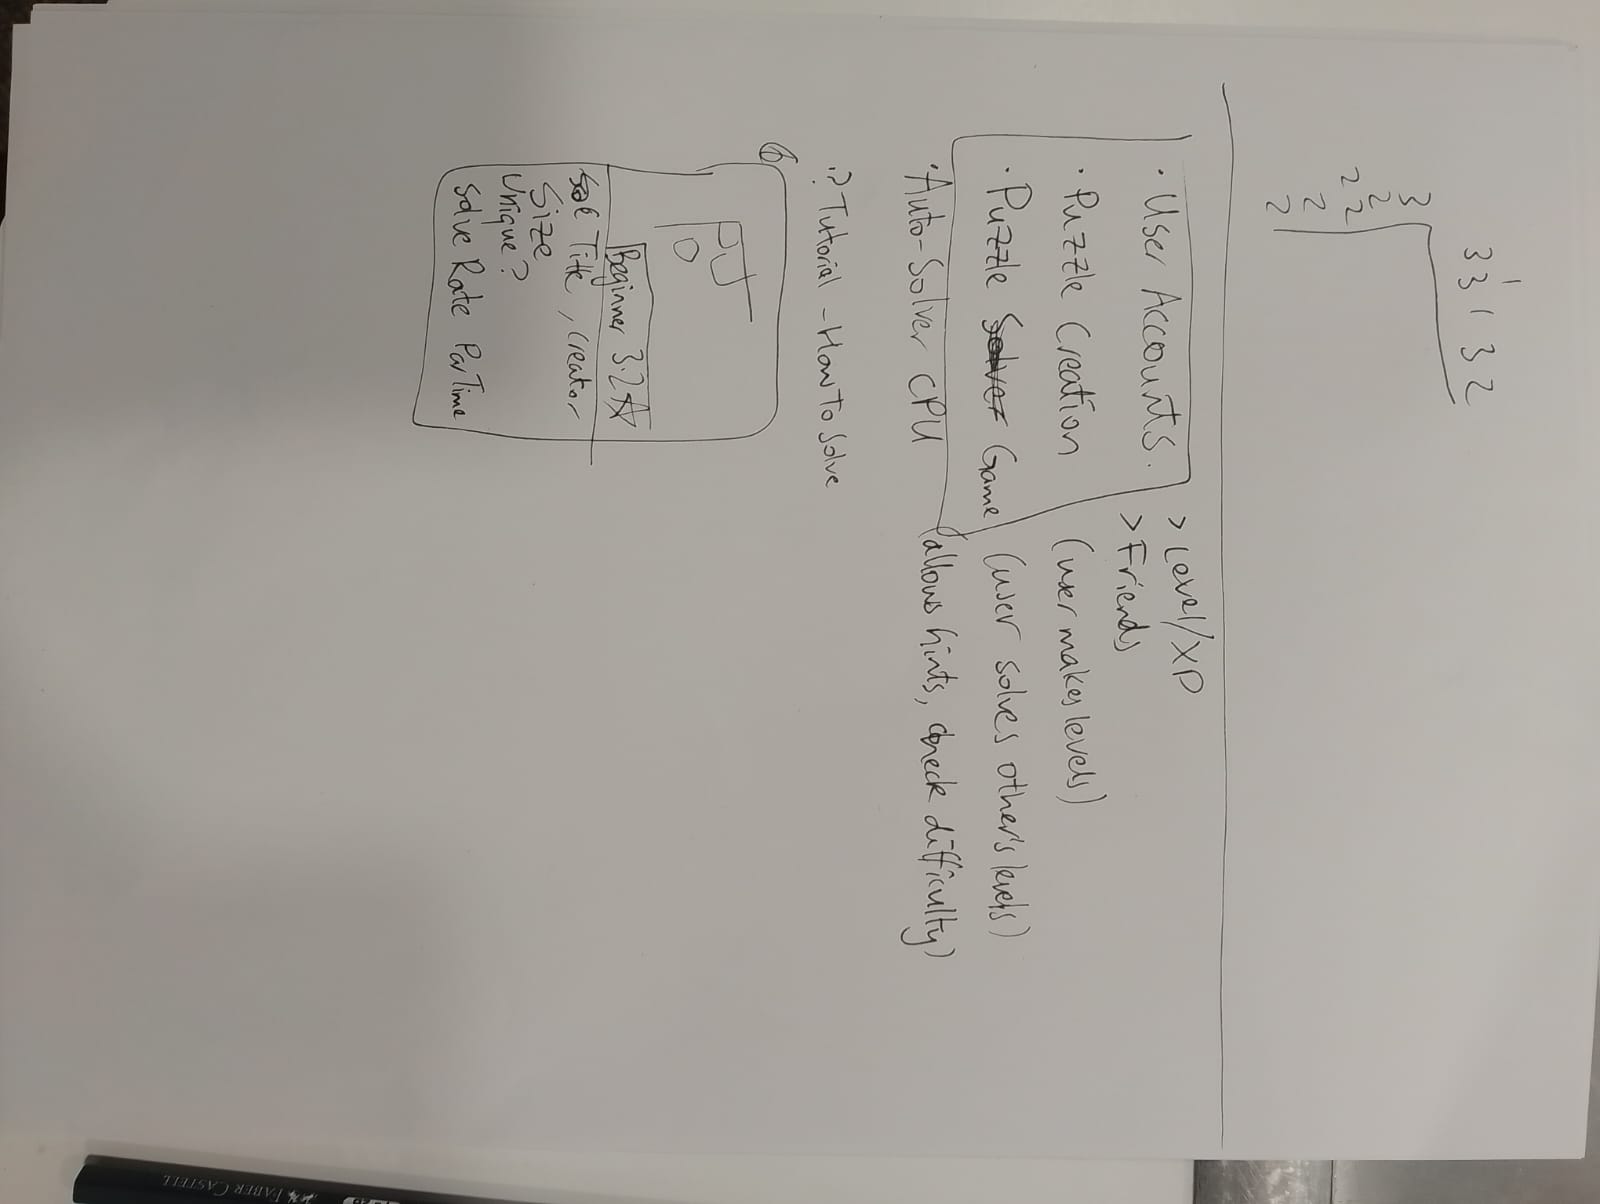 1
3 3 1 3 2
3
2
2 2
2
2
· User Accounts.
> Level/XP
> Friends
· Puzzle Creation (user makes levels)
· Puzzle Solver Game (user solves other's levels)
· Auto-Solver CPU (allows hints, check difficulty)
·? Tutorial - How To Solve
Beginner 3.2 ☆
Title, Creator
Size
Unique?
Solve Rate Par Time
FABER CASTELL